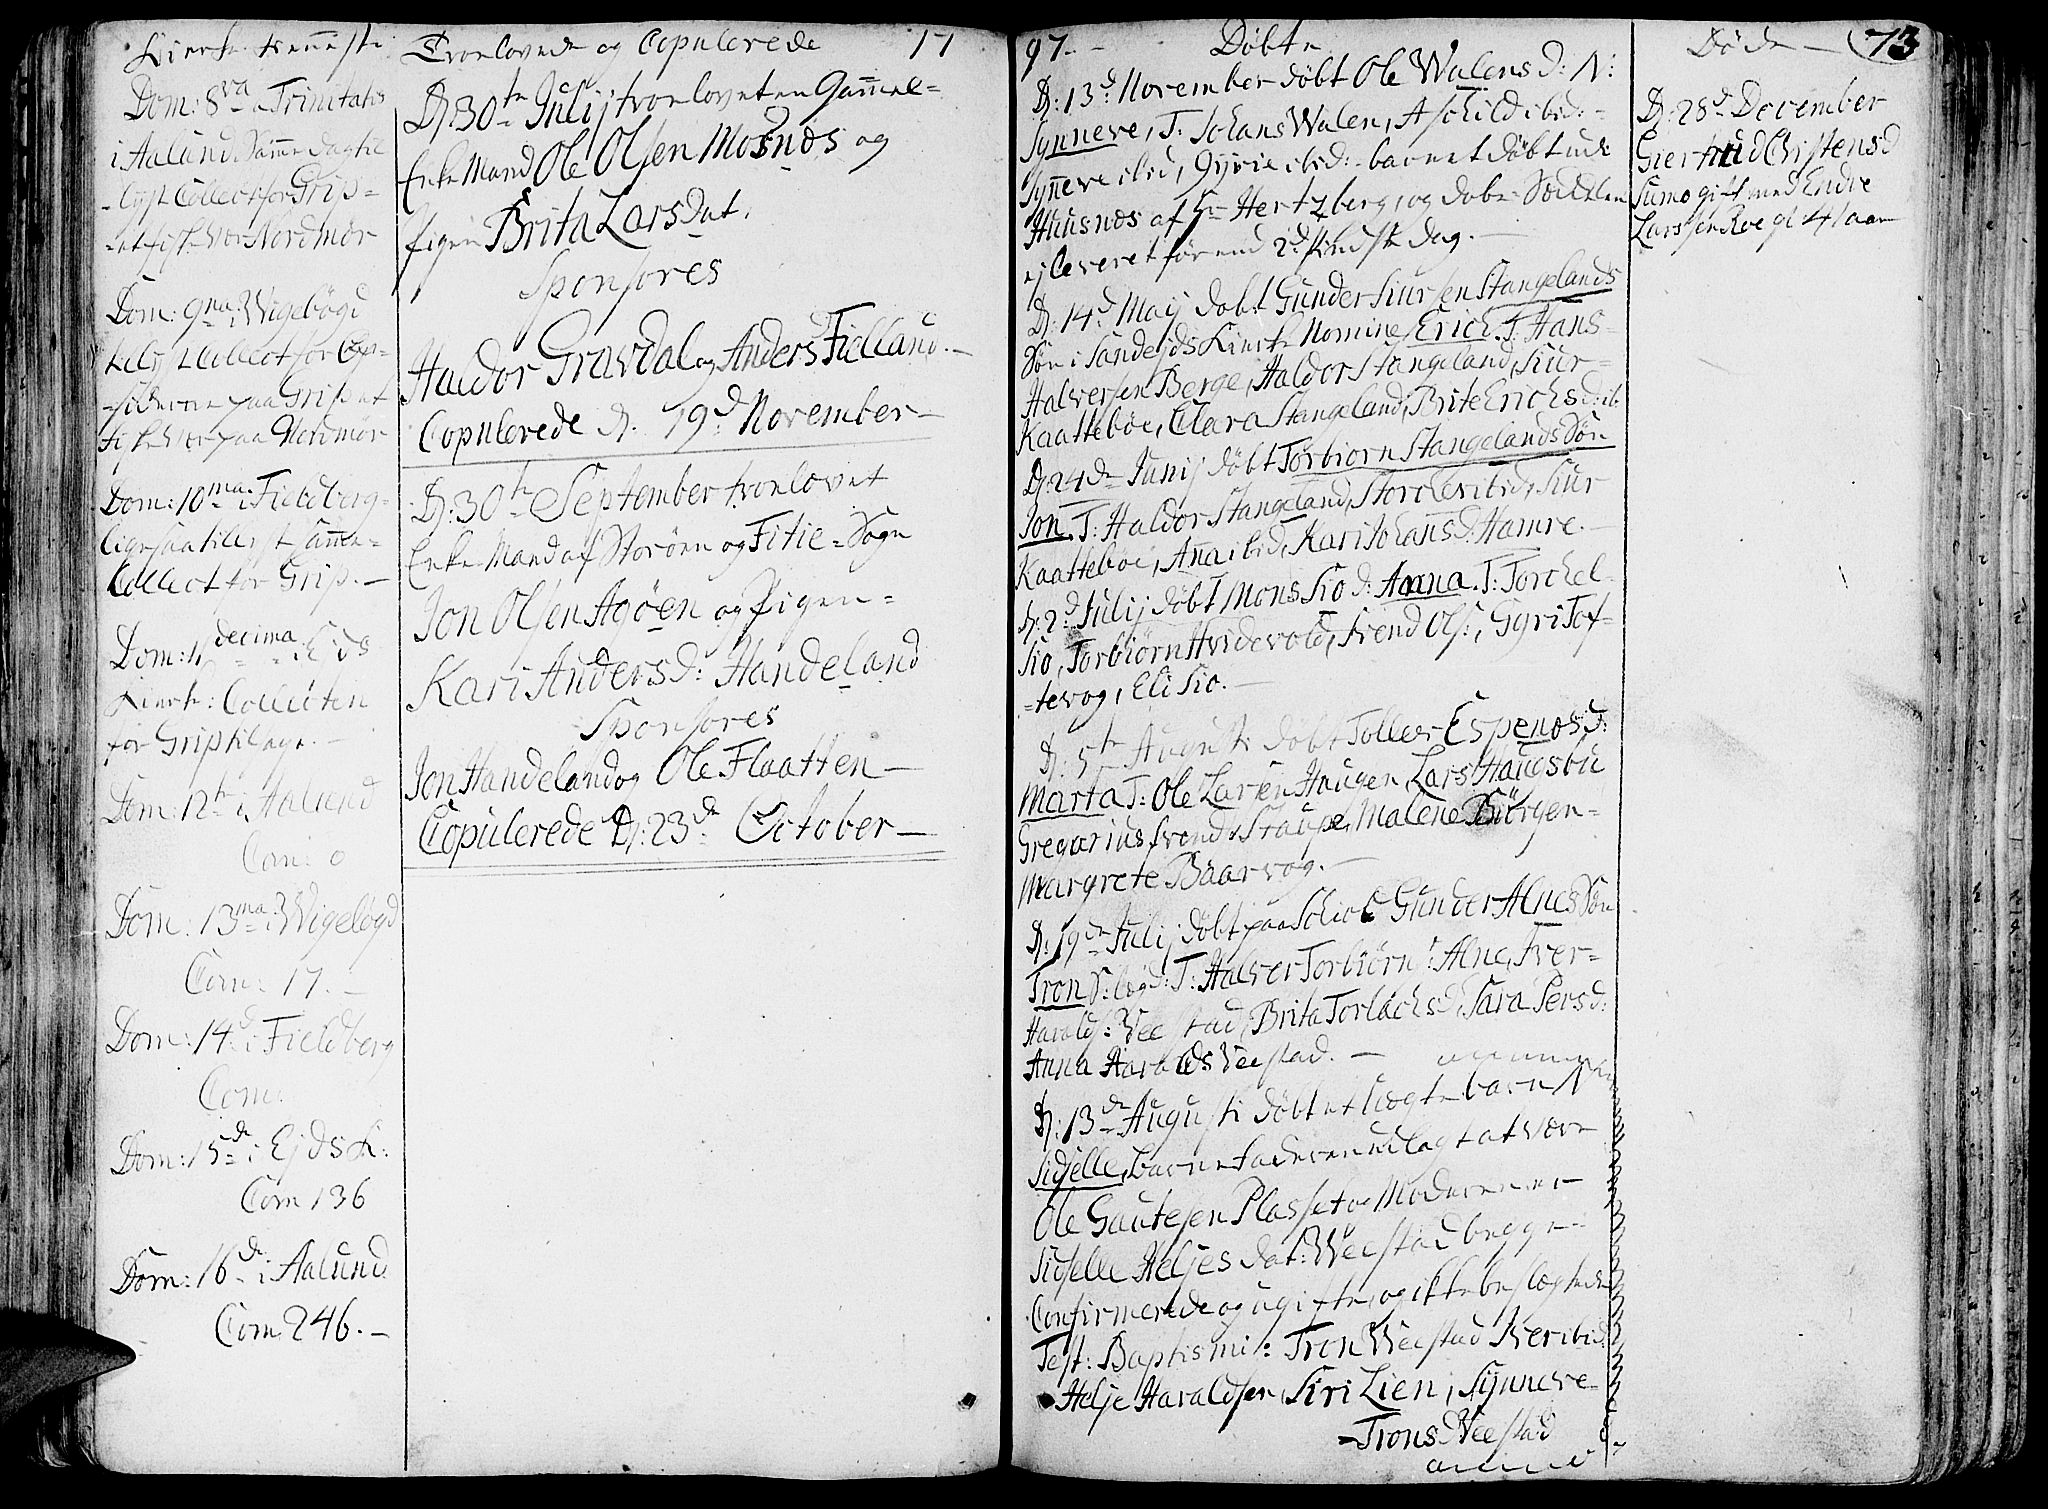 Kierke tienneste
Dom: 8va Trinitatis
i Aalund Samme dag til
-lyst Collect for Grip-
Nordmör
Dom: 9na i Wigebögd
Collect for
paa Grip et
paa Nordmör
Dom: 10ma i Fieldberg
ligesaa tilust samme
Collect for Grip. —
Dom: 11 decima i Ejds
Kierke: Collecten
for Grip tilagt. —
Dom: 12te i Aalund
Com: 0
Dom: 13ma i Wigebögd
Com: 17. —
Dom: 14d i Fieldberg
Com:
Dom: 15de i Ejds K:
Com 136
Dom: 16de i Aalund
Com 246. —
Troelovede og Copulerede 17
D: 30te Julij troelovet en Gammel-
Enke Mand Ole Olsen Mosnæs og
Pigen Brita Larsdat.
Sponsores
Haldor Gravdal og Anders Fielland. —
Copulerede d. 19d November —
D: 30te September troelovet
Enke Mand af Storöen og Fitie-Sogn
Jon Olsen Agöen og Pigen-
Kari Anders d: Handeland
Sponsores
Jon Handeland og Ole Flaatten —
Copulerede D: 23de October —
97. - Döbte
D: 13d November döbt Ole Walens d: N:
Synneve, T: Johans Walen, Aschild ibid: -
Synneve ibid, Gyrie ibid: barnet döbt ude
Huusnæs af Hr Hertzberg, og Dobe-Seddelen
ej leveret förend 2d Dag. —
D: 14d Maij döbt Gunder Siursen Stangelands
Sön i Sandejds Kierke Nomine Erich. T: Hans-
Halversen Berge, Haldor Stangeland, Siur-
Kaatteböe, Clara Stangeland, Brite Erichsd: ib
D: 24de Junij döbt Torbiorn Stangelands Sön
Jon. T: Haldor Stangeland, Storcher ibid, Siur
Kaatteböe, Anna ibid, Kari Johans d: Hamre. —
D: 2d Julij döbt Mons Sio d: Anna. T: Torchel
Sio, Torbiörn Hvidevold, Svend Ols:, Gyri Tof-
-tevog, Eli Sio. —
D: 5te Augusti döbt Tollev Espenæs d:
Marta T: Ole Larsen Haugen, Lars Haugsbu
Gregorius Svends Staupe, Malene Börgen-
Margrete Baarvog. —
D: 19de Julij döbt paa Schiold Gunder Alnes Sön
Tron T: Halver Torbiörns: Alne, Iver-
Haralds: Vee stad, Brita Torlachsd, Sara Persd:
Anna Haralds Veestad. —
D: 13de Augusti döbt et uægte barn N
Sidselle, barne Faderen udlagt at være
Ole Gautesen Plasset og Moderen er —
Sidselle Heljes dat: Weestad begge-
Confirmerede og ugifte, og ikke beslægtede
Test: Baptismi: Tron Weestad Iver ibid
Helje Haraldsen, Siri Lien, Synneve-
Trons d Veestad
Döde — 73
D: 28d December
Giertrud Christensd
Sumo gift med Endre
Larssen Roe gl 41 aar